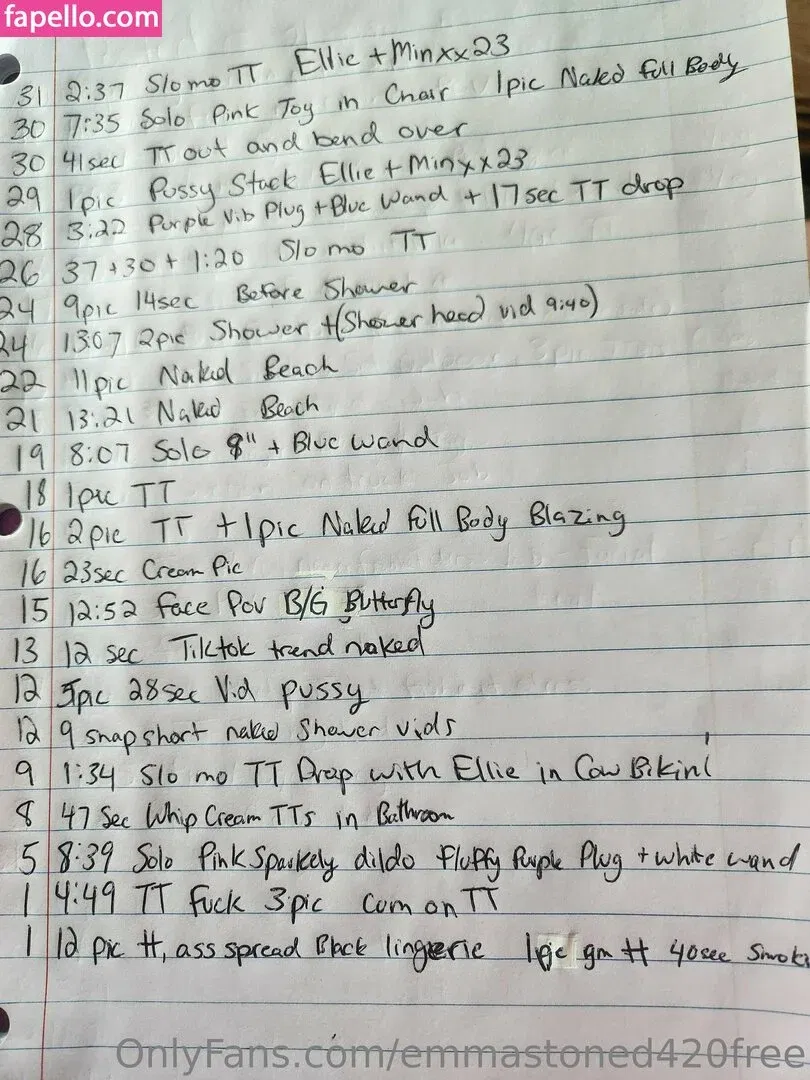 fapello.com
31 2:37 Slo mo TT Ellie + Minxx23
30 7:35 Solo Pink Toy in Chair 1pic Naked Full Body
30 41sec TT out and bend over
29 1pic Pussy Stack Ellie + Minxx23
28 3:22 Purple Vib Plug + Blue Wand + 17sec TT drop
26 37+30+1:20 Slo mo TT
24 9pic 14sec Before Shower
24 13:07 2pic Shower + (Shower head vid 9:40)
22 11pic Naked Beach
21 13:21 Naked Beach
19 8:07 Solo 8" + Blue wand
18 1pic TT
16 2pic TT + 1pic Naked Full Body Blazing
16 23sec Cream Pic
15 12:52 Face Pov B/G Butterfly
13 12 sec Tiktok trend naked
12 5pic 28sec Vid pussy
12 9 snap short naked Shower vids
9 1:34 Slo mo TT Drop with Ellie in Cow Bikini
8 47 Sec Whip Cream TTs in Bathroom
5 8:39 Solo Pink Sparkely dildo Fluffy Purple Plug + white wand
1 4:49 TT Fuck 3pic Cum on TT
1 12 pic tt, ass spread Black lingerie 1pic gm tt 40sec
OnlyFans.com/emmastoned420free